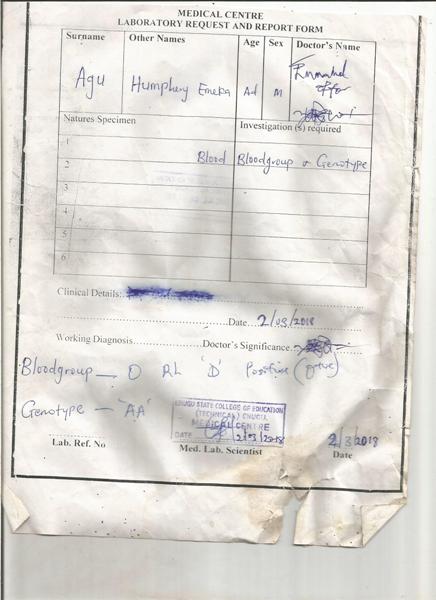 MEDICAL CENTRE
LABORATORY REQUEST AND REPORT FORM
Surname Other Names Age Sex Doctor's Name
Agu Humphery Emeka Ad M
Natures Specimen Investigation (s) required
1
2 Blood Bloodgroup & Genotype
3
4
5
6
Clinical Details:
Date 2/03/2018
Working Diagnosis Doctor's Significance
Bloodgroup — O Rh 'D' Positive (O+ve)
Genotype — 'AA'
ENUGU STATE COLLEGE OF EDUCATION
(TECHNICAL) ENUGU
MEDICAL CENTRE
DATE 2/03/2018
2/3/2018
Lab. Ref. No Med. Lab. Scientist Date